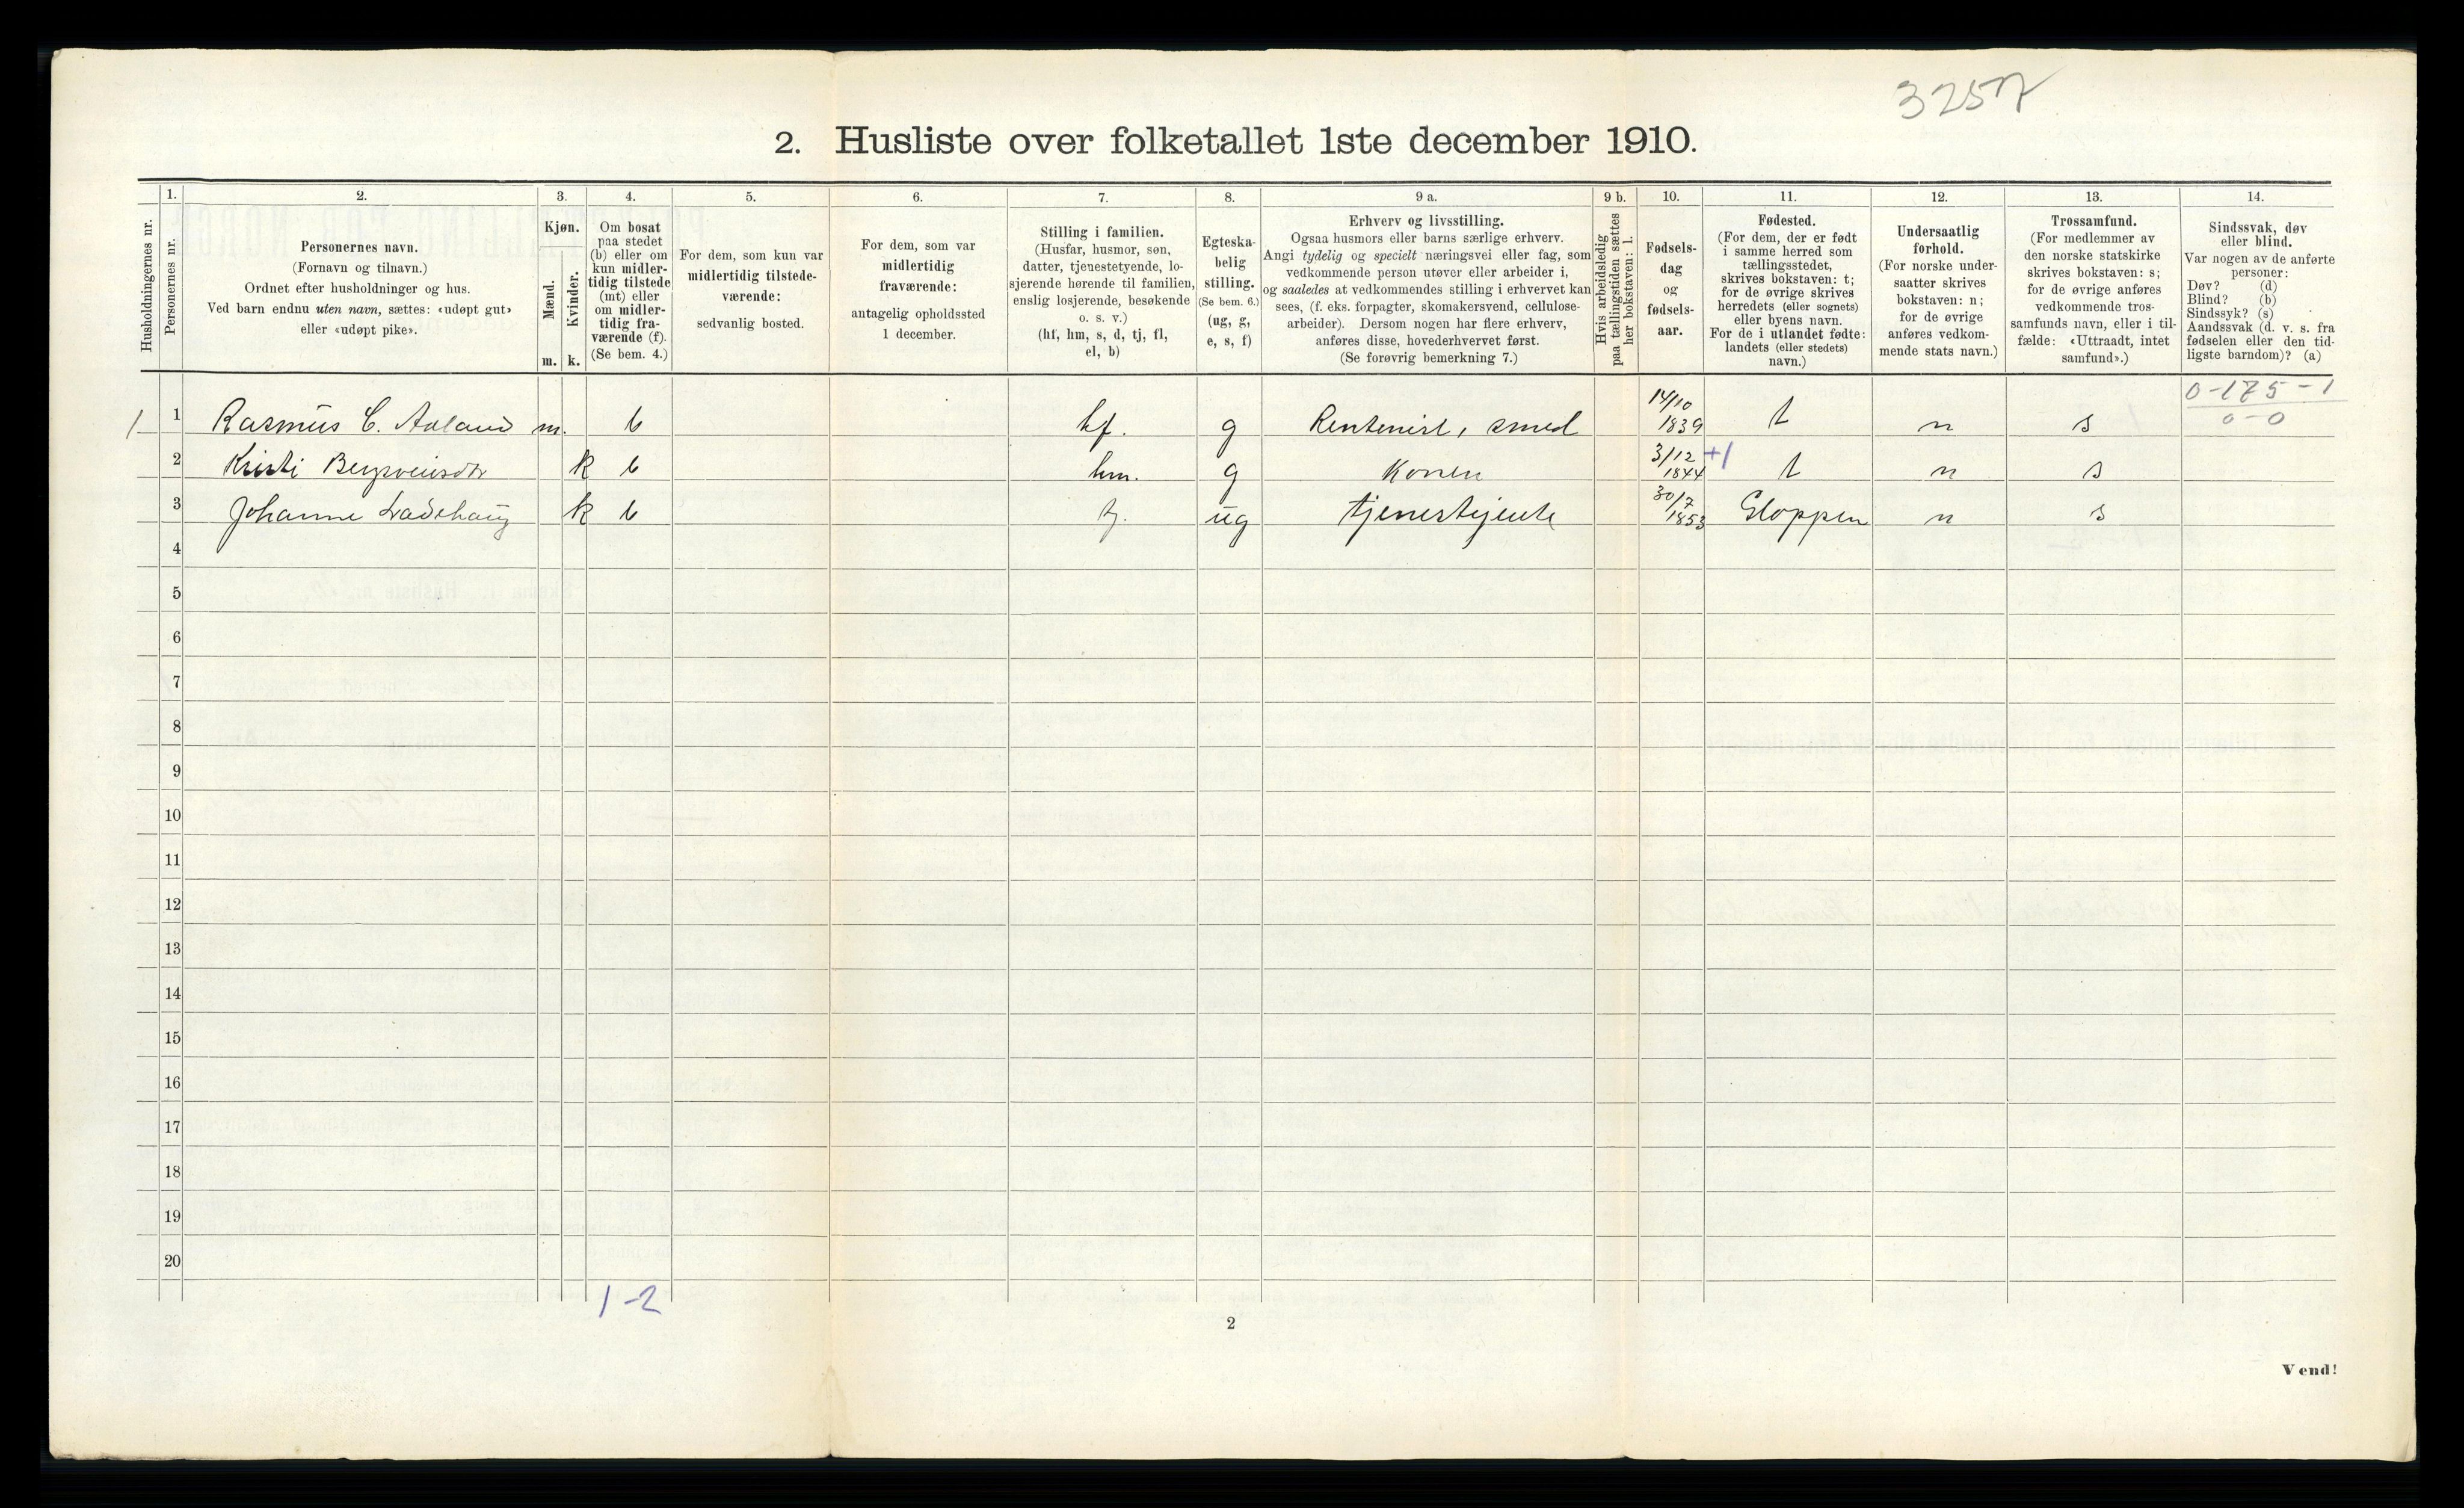 3257
2. Husliste over folketallet 1ste december 1910.
Husholdningernes nr.
1.
Personernes nr.
2.
Personernes navn.
(Fornavn og tilnavn.)
Ordnet efter husholdninger og hus.
Ved barn endnu uten navn, sættes: «udøpt gut»
eller «udøpt pike».
3.
Kjøn.
Mænd.
Kvinder.
m. k.
4.
Om bosat
paa stedet
(b) eller om
kun midler-
tidig tilstede
(mt) eller
om midler-
tidig fra-
værende (f).
(Se bem. 4.)
5.
For dem, som kun var
midlertidig tilstede-
værende:
sedvanlig bosted.
6.
For dem, som var
midlertidig
fraværende:
antagelig opholdssted
1 december.
7.
Stilling i familien.
(Husfar, husmor, søn,
datter, tjenestetyende, lo-
sjerende hørende til familien,
enslig losjerende, besøkende
o. s. v.)
(hf, hm, s, d, tj, fl,
el, b)
8.
Egteska-
belig
stilling.
(Se bem. 6.)
(ug, g,
e, s, f)
9 a.
Erhverv og livsstilling.
Ogsaa husmors eller barns særlige erhverv.
Angi tydelig og specielt næringsvei eller fag, som
vedkommende person utøver eller arbeider i,
og saaledes at vedkommendes stilling i erhvervet kan
sees, (f. eks. forpagter, skomakersvend, cellulose-
arbeider). Dersom nogen har flere erhverv,
anføres disse, hovederhvervet først.
(Se forøvrig bemerkning 7.)
9 b.
Hvis arbeidsledig
paa tællingstiden sættes
her bokstaven: l.
10.
Fødsels-
dag
og
fødsels-
aar.
11.
Fødested.
(For dem, der er født
i samme herred som
tællingsstedet,
skrives bokstaven: t;
for de øvrige skrives
herredets (eller sognets)
eller byens navn.
For de i utlandet fødte:
landets (eller stedets)
navn.)
12.
Undersaatlig
forhold.
(For norske under-
saatter skrives
bokstaven: n;
for de øvrige
anføres vedkom-
mende stats navn.)
13.
Trossamfund.
(For medlemmer av
den norske statskirke
skrives bokstaven: s;
for de øvrige anføres
vedkommende tros-
samfunds navn, eller i til-
fælde: «Uttraadt, intet
samfund».)
14.
Sindssvak, døv
eller blind.
Var nogen av de anførte
personer:
Døv? (d)
Blind? (b)
Sindssyk? (s)
Aandssvak (d. v. s. fra
fødselen eller den tid-
ligste barndom)? (a)
0-175-1
0-0
1 1 Rasmus C. Aaland m. b hf. g Rentenist, smed 14/10 1839 t n s
2 Kristi k b hm. g Konen 3/12 1844 +1 t n s
3 Johanne k b tj. ug tjenestejente 30/7 1853 Gloppen n s
4
5
6
7
8
9
10
11
12
13
14
15
16
17
18
19
20
1-2
2
Vend!